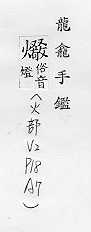 龍龕手鑑
俗音
燈
(火部
V2
P18
A7
)